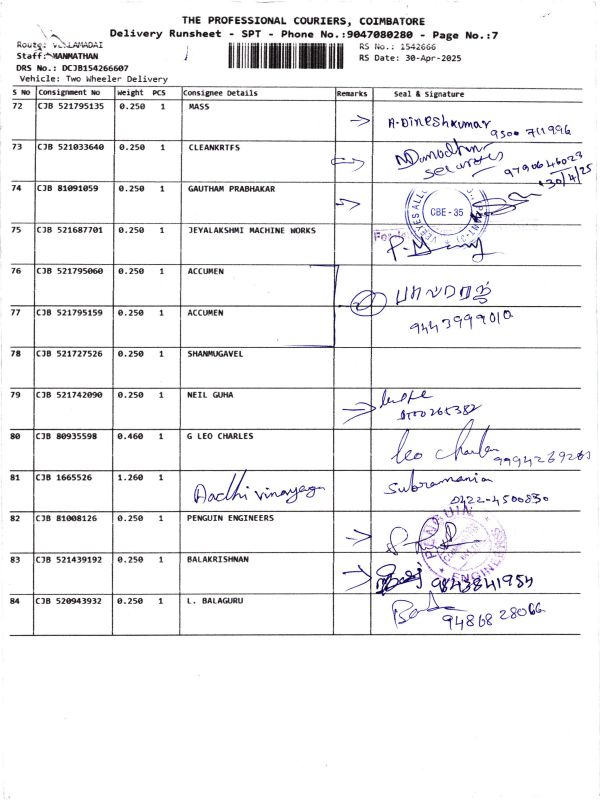 THE PROFESSIONAL COURIERS, COIMBATORE
Delivery Runsheet - SPT - Phone No.:9047080280 - Page No.:7
Route: VELLAMADAI
RS No.: 1542666
Staff: MANMATHAN
RS Date: 30-Apr-2025
DRS No.: DCJB154266607
Vehicle: Two Wheeler Delivery
S No Consignment No Weight PCS Consignee Details Remarks Seal & Signature
72 CJB 521795135 0.250 1 MASS
A-Dineshkumar
9500 711996
73 CJB 521033640 0.250 1 CLEANKRTFS
9790646023
30/4/25
74 CJB 81091059 0.250 1 GAUTHAM PRABHAKAR
CBE - 35
75 CJB 521687701 0.250 1 JEYALAKSHMI MACHINE WORKS
76 CJB 521795060 0.250 1 ACCUMEN
77 CJB 521795159 0.250 1 ACCUMEN
78 CJB 521727526 0.250 1 SHANMUGAVEL
79 CJB 521742090 0.250 1 NEIL GUHA
80 CJB 80935598 0.460 1 G LEO CHARLES
Leo Charles
81 CJB 1665526 1.260 1 Aadhi vinayaga Subramania
0422-4500850
82 CJB 81008126 0.250 1 PENGUIN ENGINEERS
83 CJB 521439192 0.250 1 BALAKRISHNAN
9843841954
84 CJB 520943932 0.250 1 L. BALAGURU
9486828066